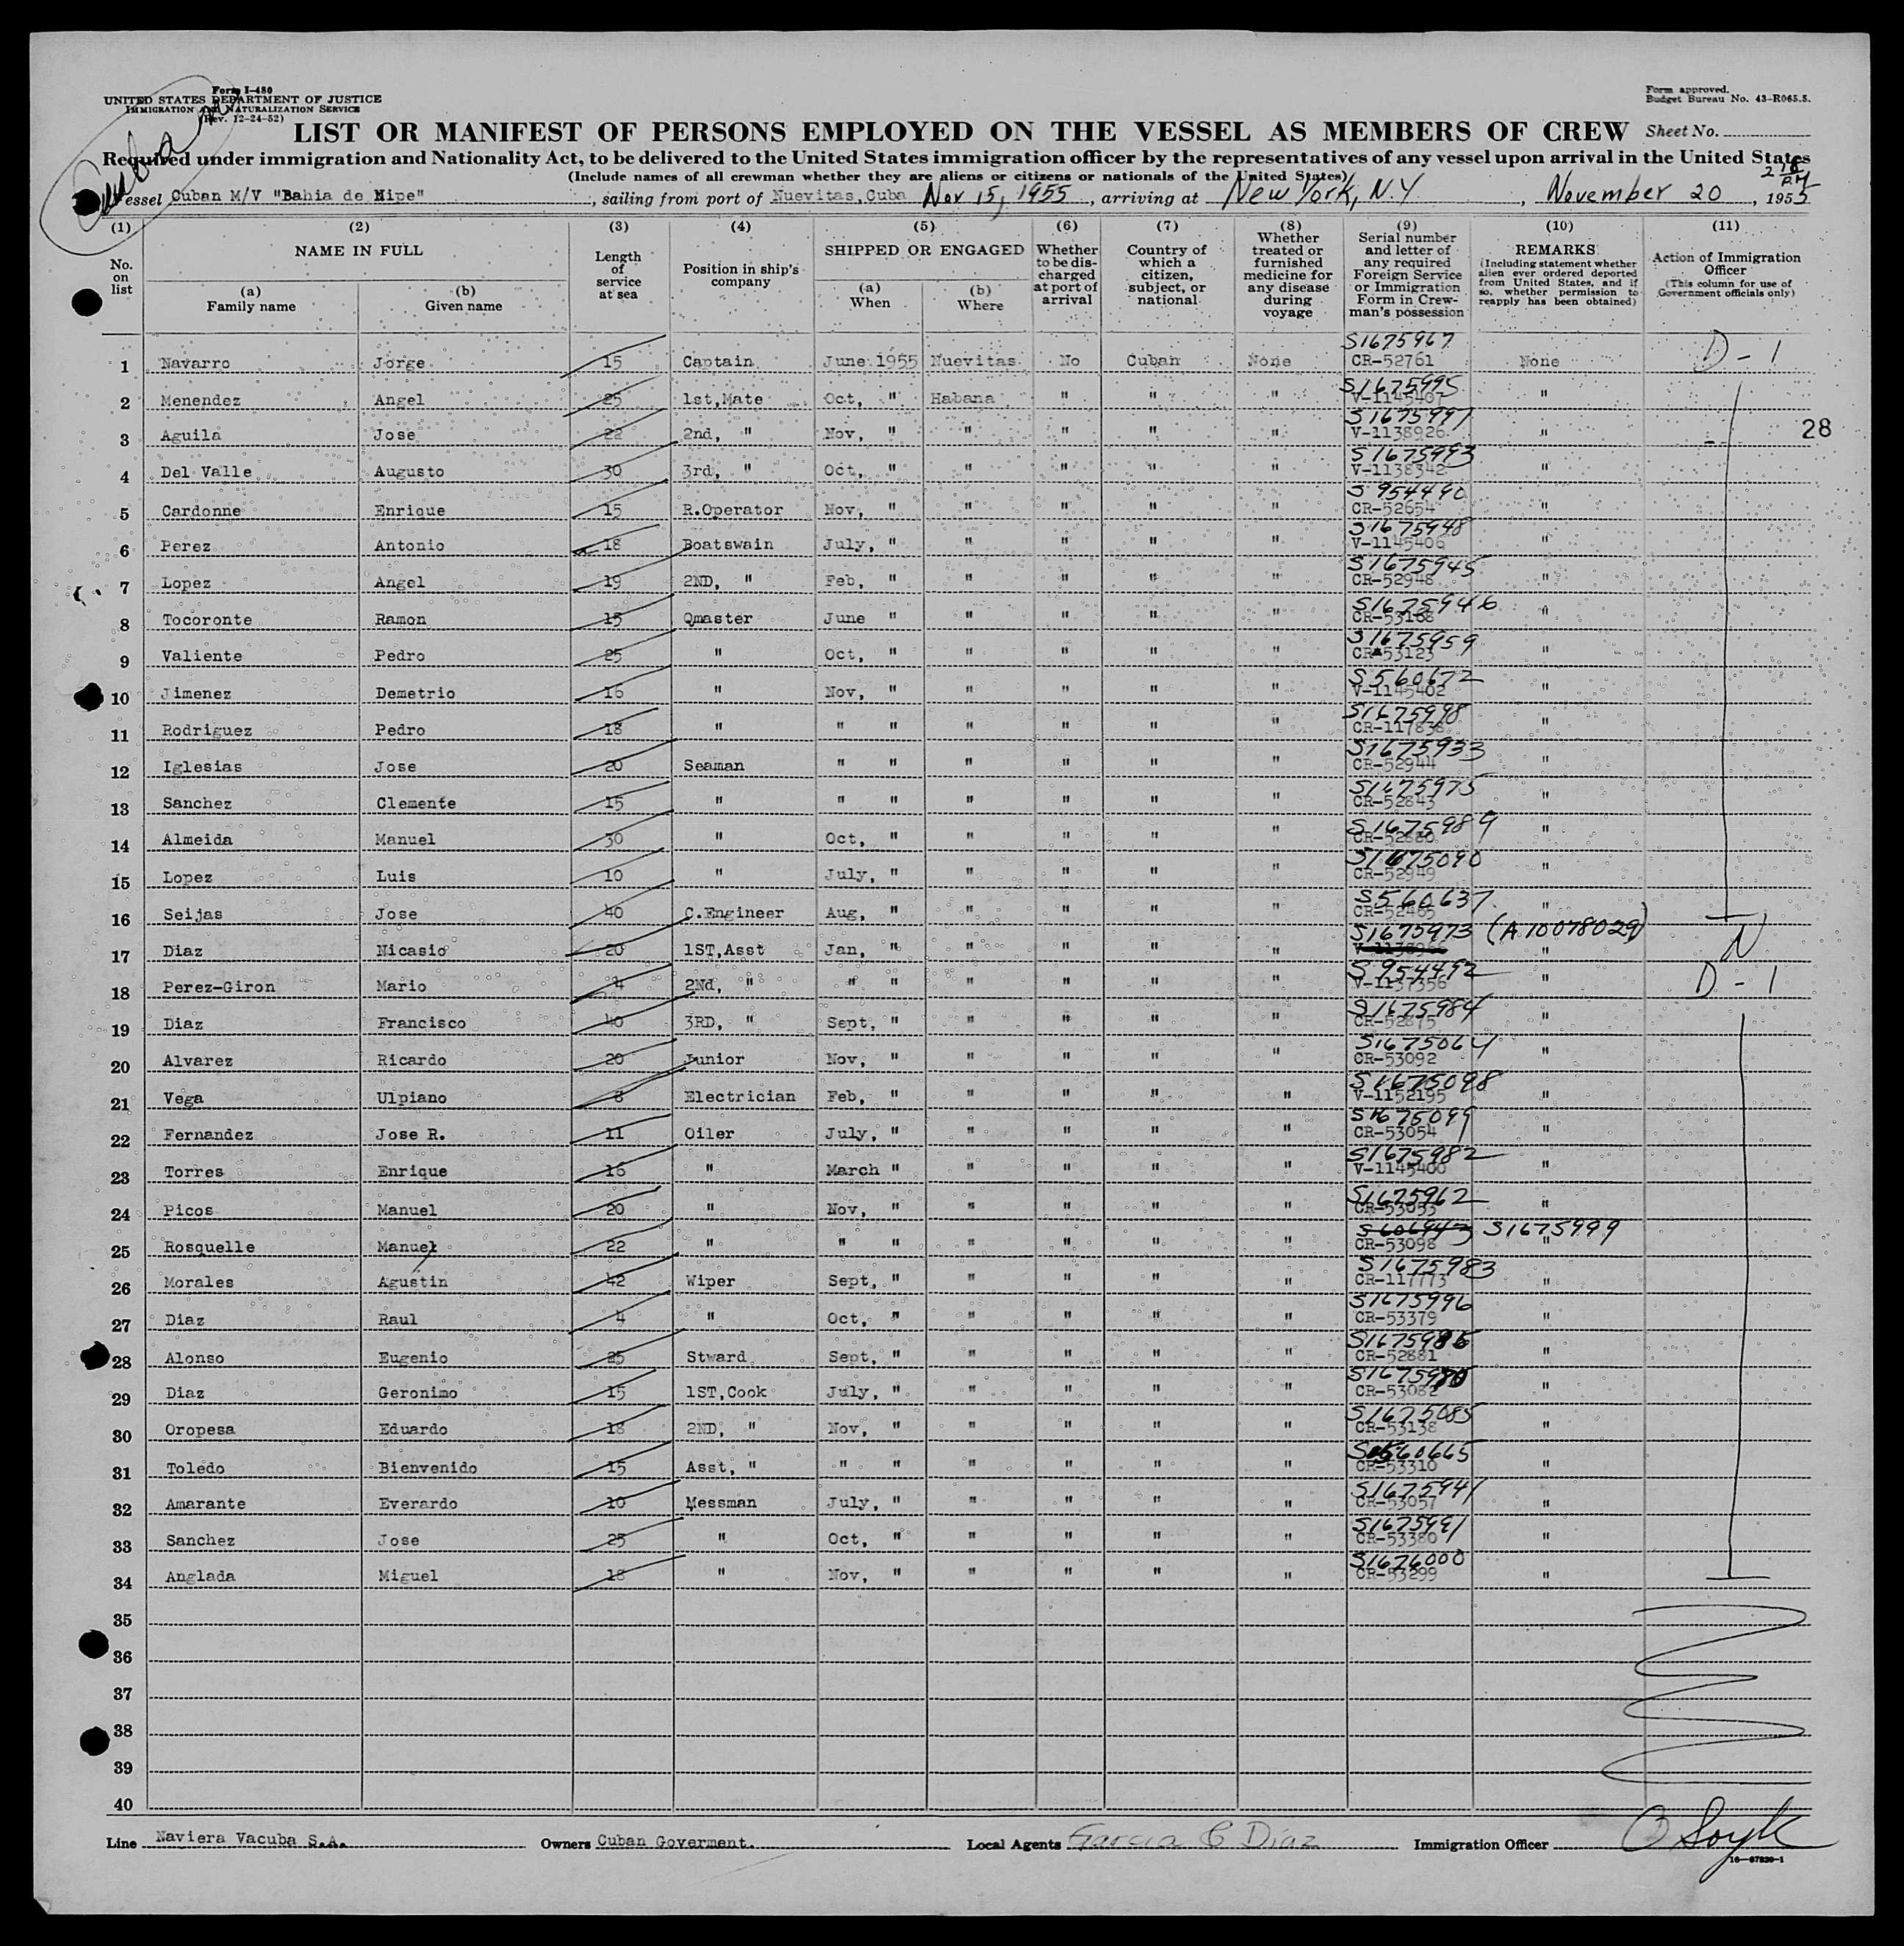 Form I-480
UNITED STATES DEPARTMENT OF JUSTICE
IMMIGRATION AND NATURALIZATION SERVICE
(Rev. 12-24-52)
Cuban
Form approved.
Budget Bureau No. 43-R065.5.
LIST OR MANIFEST OF PERSONS EMPLOYED ON THE VESSEL AS MEMBERS OF CREW Sheet No.
Required under immigration and Nationality Act, to be delivered to the United States immigration officer by the representatives of any vessel upon arrival in the United States
(Include names of all crewman whether they are aliens or citizens or nationals of the United States)
Vessel Cuban M/V "Bahia de Nipe", sailing from port of Nuevitas,Cuba Nov 15, 1955, arriving at New York, N.Y., November 20, 1955
PM
(1) (2) (3) (4) (5) (6) (7) (8) (9) (10) (11)
No. on list
NAME IN FULL
(a) Family name
(b) Given name
Length of service at sea
Position in ship's company
SHIPPED OR ENGAGED
(a) When
(b) Where
Whether to be discharged at port of arrival
Country of which a citizen, subject, or national
Whether treated or furnished medicine for any disease during voyage
Serial number and letter of any required Foreign Service or Immigration Form in Crewman's possession
REMARKS
(Including statement whether alien ever ordered deported from United States, and if so, whether permission to reapply has been obtained)
Action of Immigration Officer
(This column for use of Government officials only)
1 Navarro Jorge 15 Captain June 1955 Nuevitas No Cuban None S1675967 CR-52761 None D-1
2 Menendez Angel 25 1st,Mate Oct, " Habana " " " S1675995 V-1145407 "
3 Aguila Jose 22 2nd, " Nov, " " " " " S1675991 V-1138926 "
28
4 Del Valle Augusto 30 3rd, " Oct, " " " " " S1675993 V-1138342 "
5 Cardonne Enrique 15 R.Operator Nov, " " " " " S954490 CR-52654 "
6 Perez Antonio 18 Boatswain July, " " " " " S1675948 V-1145406 "
7 Lopez Angel 19 2ND, " Feb, " " " " " S1675945 CR-52948 "
8 Tocoronte Ramon 15 Qmaster June " " " " " S1675946 CR-53168 "
9 Valiente Pedro 25 " Oct, " " " " " S1675959 CR-53123 "
10 Jimenez Demetrio 16 " Nov, " " " " " S560672 V-1145402 "
11 Rodriguez Pedro 18 " " " " " " " S1675998 CR-117838 "
12 Iglesias Jose 20 Seaman " " " " " " S1675933 CR-52944 "
13 Sanchez Clemente 15 " " " " " " " S1675975 CR-52843 "
14 Almeida Manuel 30 " Oct, " " " " " S1675989 CR-52880 "
15 Lopez Luis 10 " July, " " " " " S1675090 CR-52949 "
16 Seijas Jose 40 C.Engineer Aug, " " " " " S560637 CR-52465 "
17 Diaz Nicasio 20 1ST,Asst Jan, " " " " " S1675973 (A10078029) " N
18 Perez-Giron Mario 4 2Nd, " " " " " " " S954492 V-1137356 " D-1
19 Diaz Francisco 40 3RD, " Sept, " " " " " S1675984 CR-52875 "
20 Alvarez Ricardo 20 Junior Nov, " " " " " S1675064 CR-53092 "
21 Vega Ulpiano 8 Electrician Feb, " " " " " S1675098 V-1152195 "
22 Fernandez Jose R. 11 Oiler July, " " " " " S1675099 CR-53054 "
23 Torres Enrique 16 " March " " " " " S1675982 V-1145400 "
24 Picos Manuel 20 " Nov, " " " " " S1675962 CR-53053 "
25 Rosquelle Manuel 22 " " " " " " " S606943 CR-53098 S1675999 "
26 Morales Agustin 42 Wiper Sept, " " " " " S1675983 CR-117773 "
27 Diaz Raul 4 " Oct, " " " " " S1675996 CR-53379 "
28 Alonso Eugenio 25 Stward Sept, " " " " " CR-52881 "
29 Diaz Geronimo 15 1ST,Cook July, " " " " " CR-53082 "
30 Oropesa Eduardo 18 2ND, " Nov, " " " " " S1675085 CR-53138 "
31 Toledo Bienvenido 15 Asst, " " " " " " " CR-53310 "
32 Amarante Everardo 10 Messman July, " " " " " S1675941 CR-53057 "
33 Sanchez Jose 25 " Oct, " " " " " S1675991 CR-53380 "
34 Anglada Miguel 18 " Nov, " " " " " S1676000 CR-53299 "
35
36
37
38
39
40
Line Naviera Vacuba S.A. Owners Cuban Goverment. Local Agents Garcia & Diaz Immigration Officer
16—67820-1